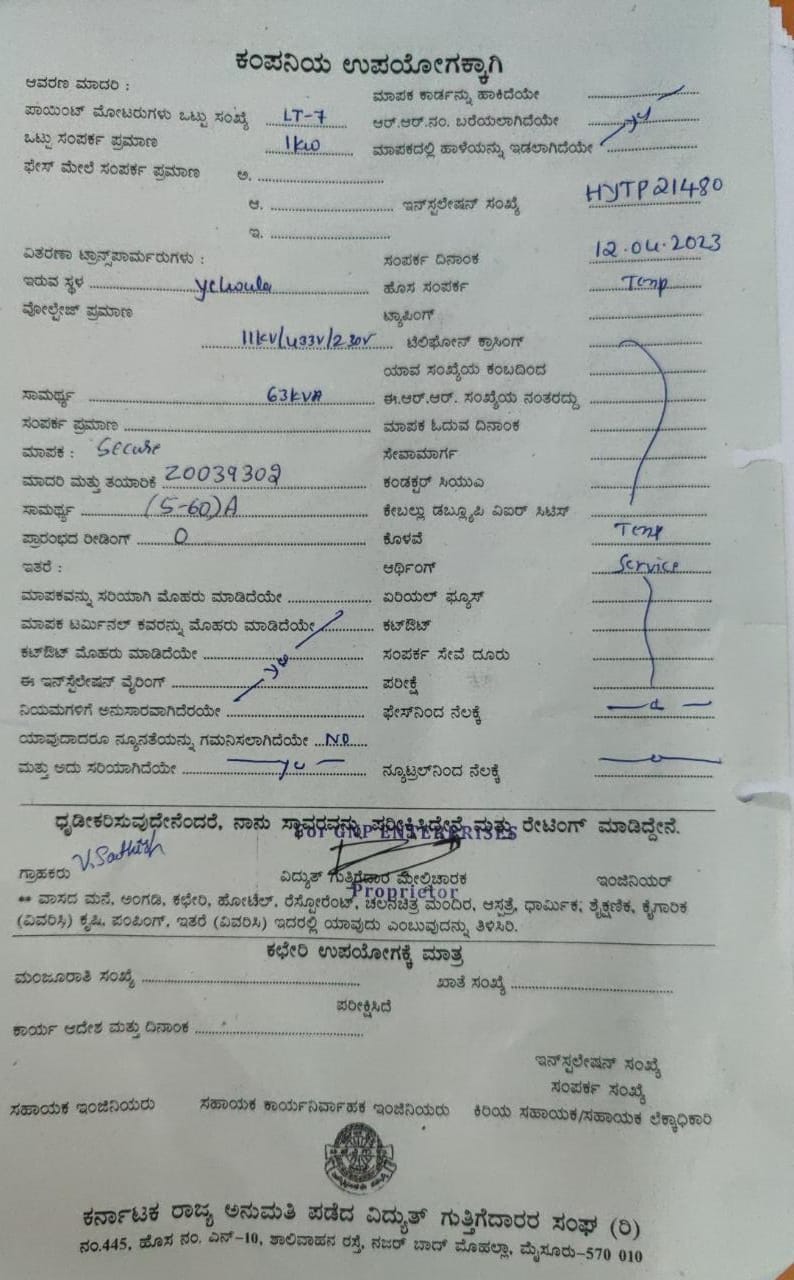 ಕಂಪನಿಯ ಉಪಯೋಗಕ್ಕಾಗಿ
ಆವರಣ ಮಾದರಿ : ಮಾಪಕ ಕಾರ್ಡನ್ನು ಹಾಕಿದೆಯೇ
ಪಾಯಿಂಟ್ ಮೋಟರುಗಳು ಒಟ್ಟು ಸಂಖ್ಯೆ LT-7 ಆರ್.ಆರ್.ನಂ. ಬರೆಯಲಾಗಿದೆಯೇ
ಒಟ್ಟು ಸಂಪರ್ಕ ಪ್ರಮಾಣ 1kw ಮಾಪಕದಲ್ಲಿ ಹಾಳೆಯನ್ನು ಇಡಲಾಗಿದೆಯೇ
ಫೇಸ್ ಮೇಲೆ ಸಂಪರ್ಕ ಪ್ರಮಾಣ ಅ.
ಆ. ಇನ್‌ಸ್ಟಲೇಷನ್ ಸಂಖ್ಯೆ HJTP21480
ಇ.
ವಿತರಣಾ ಟ್ರಾನ್ಸ್‌ಪಾರ್ಮರುಗಳು : ಸಂಪರ್ಕ ದಿನಾಂಕ 12.04.2023
ಇರುವ ಸ್ಥಳ ಹೊಸ ಸಂಪರ್ಕ Temp
ವೋಲ್ಟೇಜ್ ಪ್ರಮಾಣ ಟ್ಯಾಪಿಂಗ್
11kV/433V/230V ಟೆಲಿಫೋನ್ ಕ್ರಾಸಿಂಗ್
ಯಾವ ಸಂಖ್ಯೆಯ ಕಂಬದಿಂದ
ಸಾಮರ್ಥ್ಯ 63kVA ಈ.ಆರ್.ಆರ್. ಸಂಖ್ಯೆಯ ನಂತರದ್ದು
ಸಂಪರ್ಕ ಪ್ರಮಾಣ ಮಾಪಕ ಓದುವ ದಿನಾಂಕ
ಮಾಪಕ : Secure ಸೇವಾಮಾರ್ಗ
ಮಾದರಿ ಮತ್ತು ತಯಾರಿಕೆ 20039302 ಕಂಡಕ್ಟರ್ ಸಿಯುಎ
ಸಾಮರ್ಥ್ಯ (5-60)A ಕೇಬಲ್ಲು ಡಬ್ಲ್ಯೂಪಿ ವಿಐಆರ್ ಸಿಟಿಸ್
ಪ್ರಾರಂಭದ ರೀಡಿಂಗ್ 0 ಕೊಳವೆ Temp
ಇತರೆ : ಆರ್ಥಿಂಗ್ Service
ಮಾಪಕವನ್ನು ಸರಿಯಾಗಿ ಮೊಹರು ಮಾಡಿದೆಯೇ ಏರಿಯಲ್ ಫ್ಯೂಸ್
ಮಾಪಕ ಟರ್ಮಿನಲ್ ಕವರನ್ನು ಮೊಹರು ಮಾಡಿದೆಯೇ ಕಟ್‌ಔಟ್
ಕಟ್‌ಔಟ್ ಮೊಹರು ಮಾಡಿದೆಯೇ ಸಂಪರ್ಕ ಸೇವೆ ದೂರು
ಈ ಇನ್‌ಸ್ಟಲೇಷನ್ ವೈರಿಂಗ್ ಪರೀಕ್ಷೆ
ನಿಯಮಗಳಿಗೆ ಅನುಸಾರವಾಗಿದೆರಯೇ ಫೇಸ್‌ನಿಂದ ನೆಲಕ್ಕೆ
ಯಾವುದಾದರೂ ನ್ಯೂನತೆಯನ್ನು ಗಮನಿಸಲಾಗಿದೆಯೇ No
ಮತ್ತು ಅದು ಸರಿಯಾಗಿದೆಯೇ ನ್ಯೂಟ್ರಲ್‌ನಿಂದ ನೆಲಕ್ಕೆ
ಧೃಡೀಕರಿಸುವುದೇನೆಂದರೆ, ನಾನು ಸ್ಥಾವರವನ್ನು ಪರೀಕ್ಷಿಸಿದ್ದೇನೆ ಮತ್ತು ರೇಟಿಂಗ್ ಮಾಡಿದ್ದೇನೆ.
For GNP ENTERPRISES
V. Sathish
ಗ್ರಾಹಕರು ವಿದ್ಯುತ್ ಗುತ್ತಿಗೆದಾರ ಮೇಲ್ವಿಚಾರಕ ಇಂಜಿನಿಯರ್
Proprietor
** ವಾಸದ ಮನೆ, ಅಂಗಡಿ, ಕಛೇರಿ, ಹೋಟೆಲ್, ರೆಸ್ಟೋರೆಂಟ್, ಚಲನಚಿತ್ರ ಮಂದಿರ, ಆಸ್ಪತ್ರೆ, ಧಾರ್ಮಿಕ; ಶೈಕ್ಷಣಿಕ, ಕೈಗಾರಿಕ
(ವಿವರಿಸಿ) ಕೃಷಿ, ಪಂಪಿಂಗ್, ಇತರೆ (ವಿವರಿಸಿ) ಇದರಲ್ಲಿ ಯಾವುದು ಎಂಬುವುದನ್ನು ತಿಳಿಸಿರಿ.
ಕಛೇರಿ ಉಪಯೋಗಕ್ಕೆ ಮಾತ್ರ
ಮಂಜೂರಾತಿ ಸಂಖ್ಯೆ ಖಾತೆ ಸಂಖ್ಯೆ
ಪರೀಕ್ಷಿಸಿದೆ
ಕಾರ್ಯ ಆದೇಶ ಮತ್ತು ದಿನಾಂಕ
ಇನ್‌ಸ್ಟಲೇಷನ್ ಸಂಖ್ಯೆ
ಸಂಪರ್ಕ ಸಂಖ್ಯೆ
ಸಹಾಯಕ ಇಂಜಿನಿಯರು ಸಹಾಯಕ ಕಾರ್ಯನಿರ್ವಾಹಕ ಇಂಜಿನಿಯರು ಕಿರಿಯ ಸಹಾಯಕ/ಸಹಾಯಕ ಲೆಕ್ಕಾಧಿಕಾರಿ
ಕರ್ನಾಟಕ ರಾಜ್ಯ ಅನುಮತಿ ಪಡೆದ ವಿದ್ಯುತ್ ಗುತ್ತಿಗೆದಾರರ ಸಂಘ (ರಿ)
ನಂ.445, ಹೊಸ ನಂ. ಎನ್-10, ಶಾಲಿವಾಹನ ರಸ್ತೆ, ನಜರ್ ಬಾದ್ ಮೊಹಲ್ಲಾ, ಮೈಸೂರು-570 010